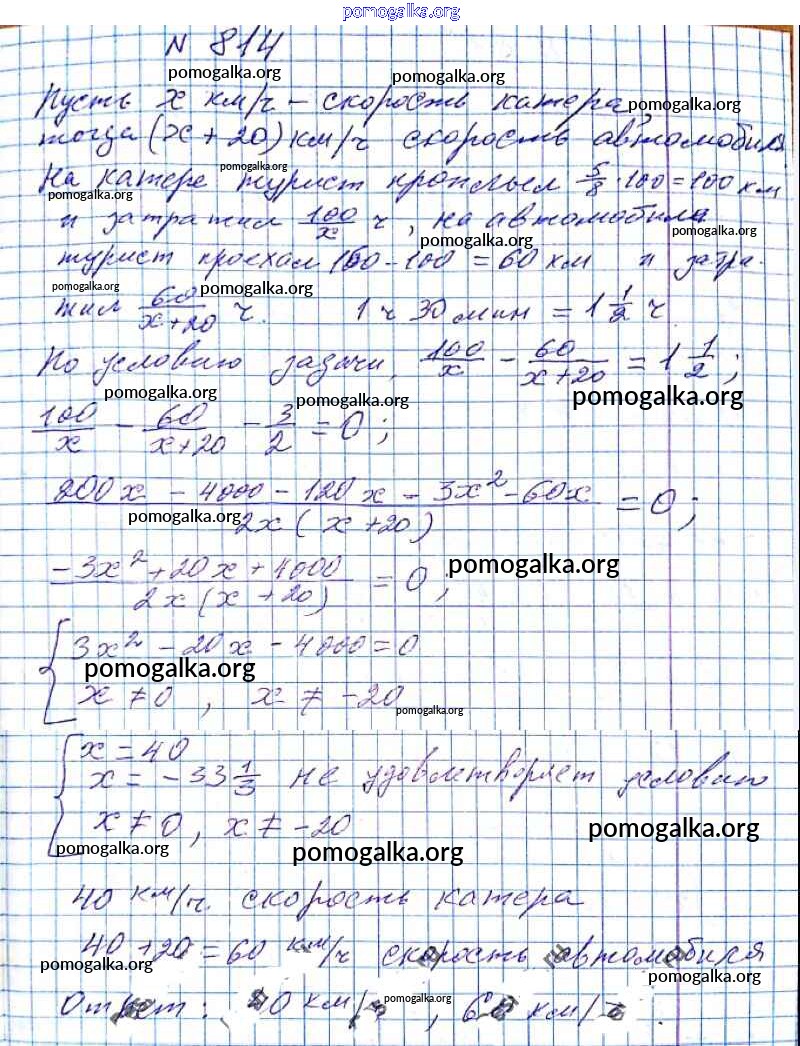 pomogalka.org
N 814
pomogalka.org pomogalka.org
Пусть x км/ч – скорость катера, pomogalka.org
тогда (x + 20) км/ч скорость автомобиля
pomogalka.org
На катере турист проплыл 5/8 · 160 = 100 км
pomogalka.org
и затратил 100/x ч, на автомобиле
pomogalka.org pomogalka.org
турист проехал 160 – 100 = 60 км и затра-
pomogalka.org pomogalka.org
тил 60/(x+20) ч. 1 ч 30 мин = 1 1/2 ч
По условию задачи, 100/x – 60/(x+20) = 1 1/2;
pomogalka.org pomogalka.org pomogalka.org
100/x – 60/(x+20) – 3/2 = 0;
(200x – 4000 – 120x – 3x² – 60x)/(2x(x+20)) = 0;
pomogalka.org
(–3x² + 20x + 4000)/(2x(x+20)) = 0;
pomogalka.org
{ 3x² – 20x – 4000 = 0
pomogalka.org
x ≠ 0, x ≠ –20
pomogalka.org
{ x = 40
x = –33 1/3 не удовлетворяет условию
x ≠ 0, x ≠ –20
pomogalka.org pomogalka.org pomogalka.org
40 км/ч. скорость катера
40 + 20 = 60 км/ч скорость автомобиля
pomogalka.org pomogalka.org
Ответ: 40 км/ч, 60 км/ч
pomogalka.org